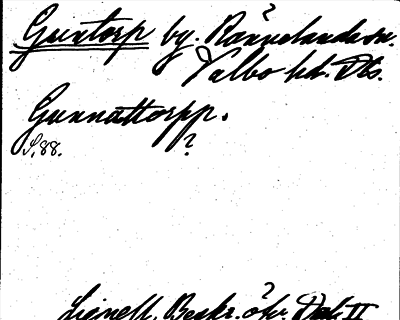 Guntorp by. Rännelanda sn.
Valbo hd. Dls.
Gunnattorpp.
S. 88. ?
Lignell, Beskr. öfv. Dal. II